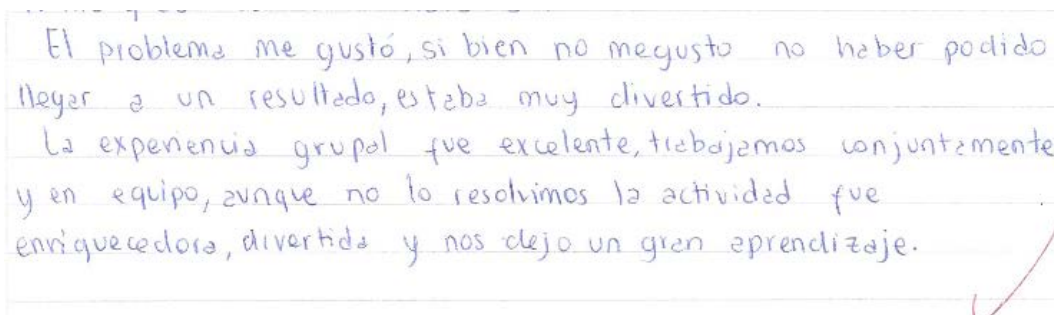 El problema me gustó, si bien no megusto no haber podido
llegar a un resultado, estaba muy divertido.
La experiencia grupal fue excelente, trabajamos conjuntamente
y en equipo, aunque no lo resolvimos la actividad fue
enriquecedora, divertida y nos dejo un gran aprendizaje.